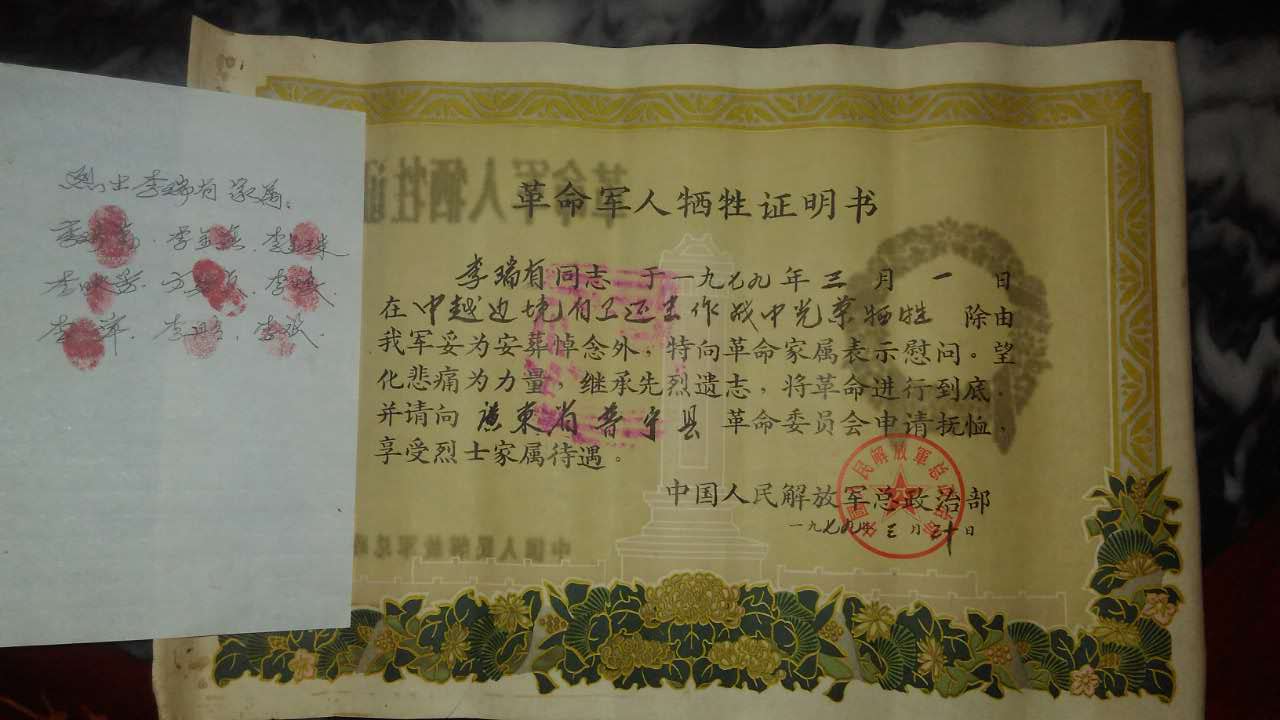 烈士李瑞有家属:
革命军人牺牲证明书
李瑞有同志于一九七九年三月一日
在中越边境自卫还击作战中光荣牺牲 除由
我军妥为安葬悼念外,特向革命家属表示慰问。望
化悲痛为力量,继承先烈遗志,将革命进行到底.
并请向 廣東省普宁县 革命委员会申请抚恤,
享受烈士家属待遇。
中国人民解放军总政治部
一九七九年三月三十日